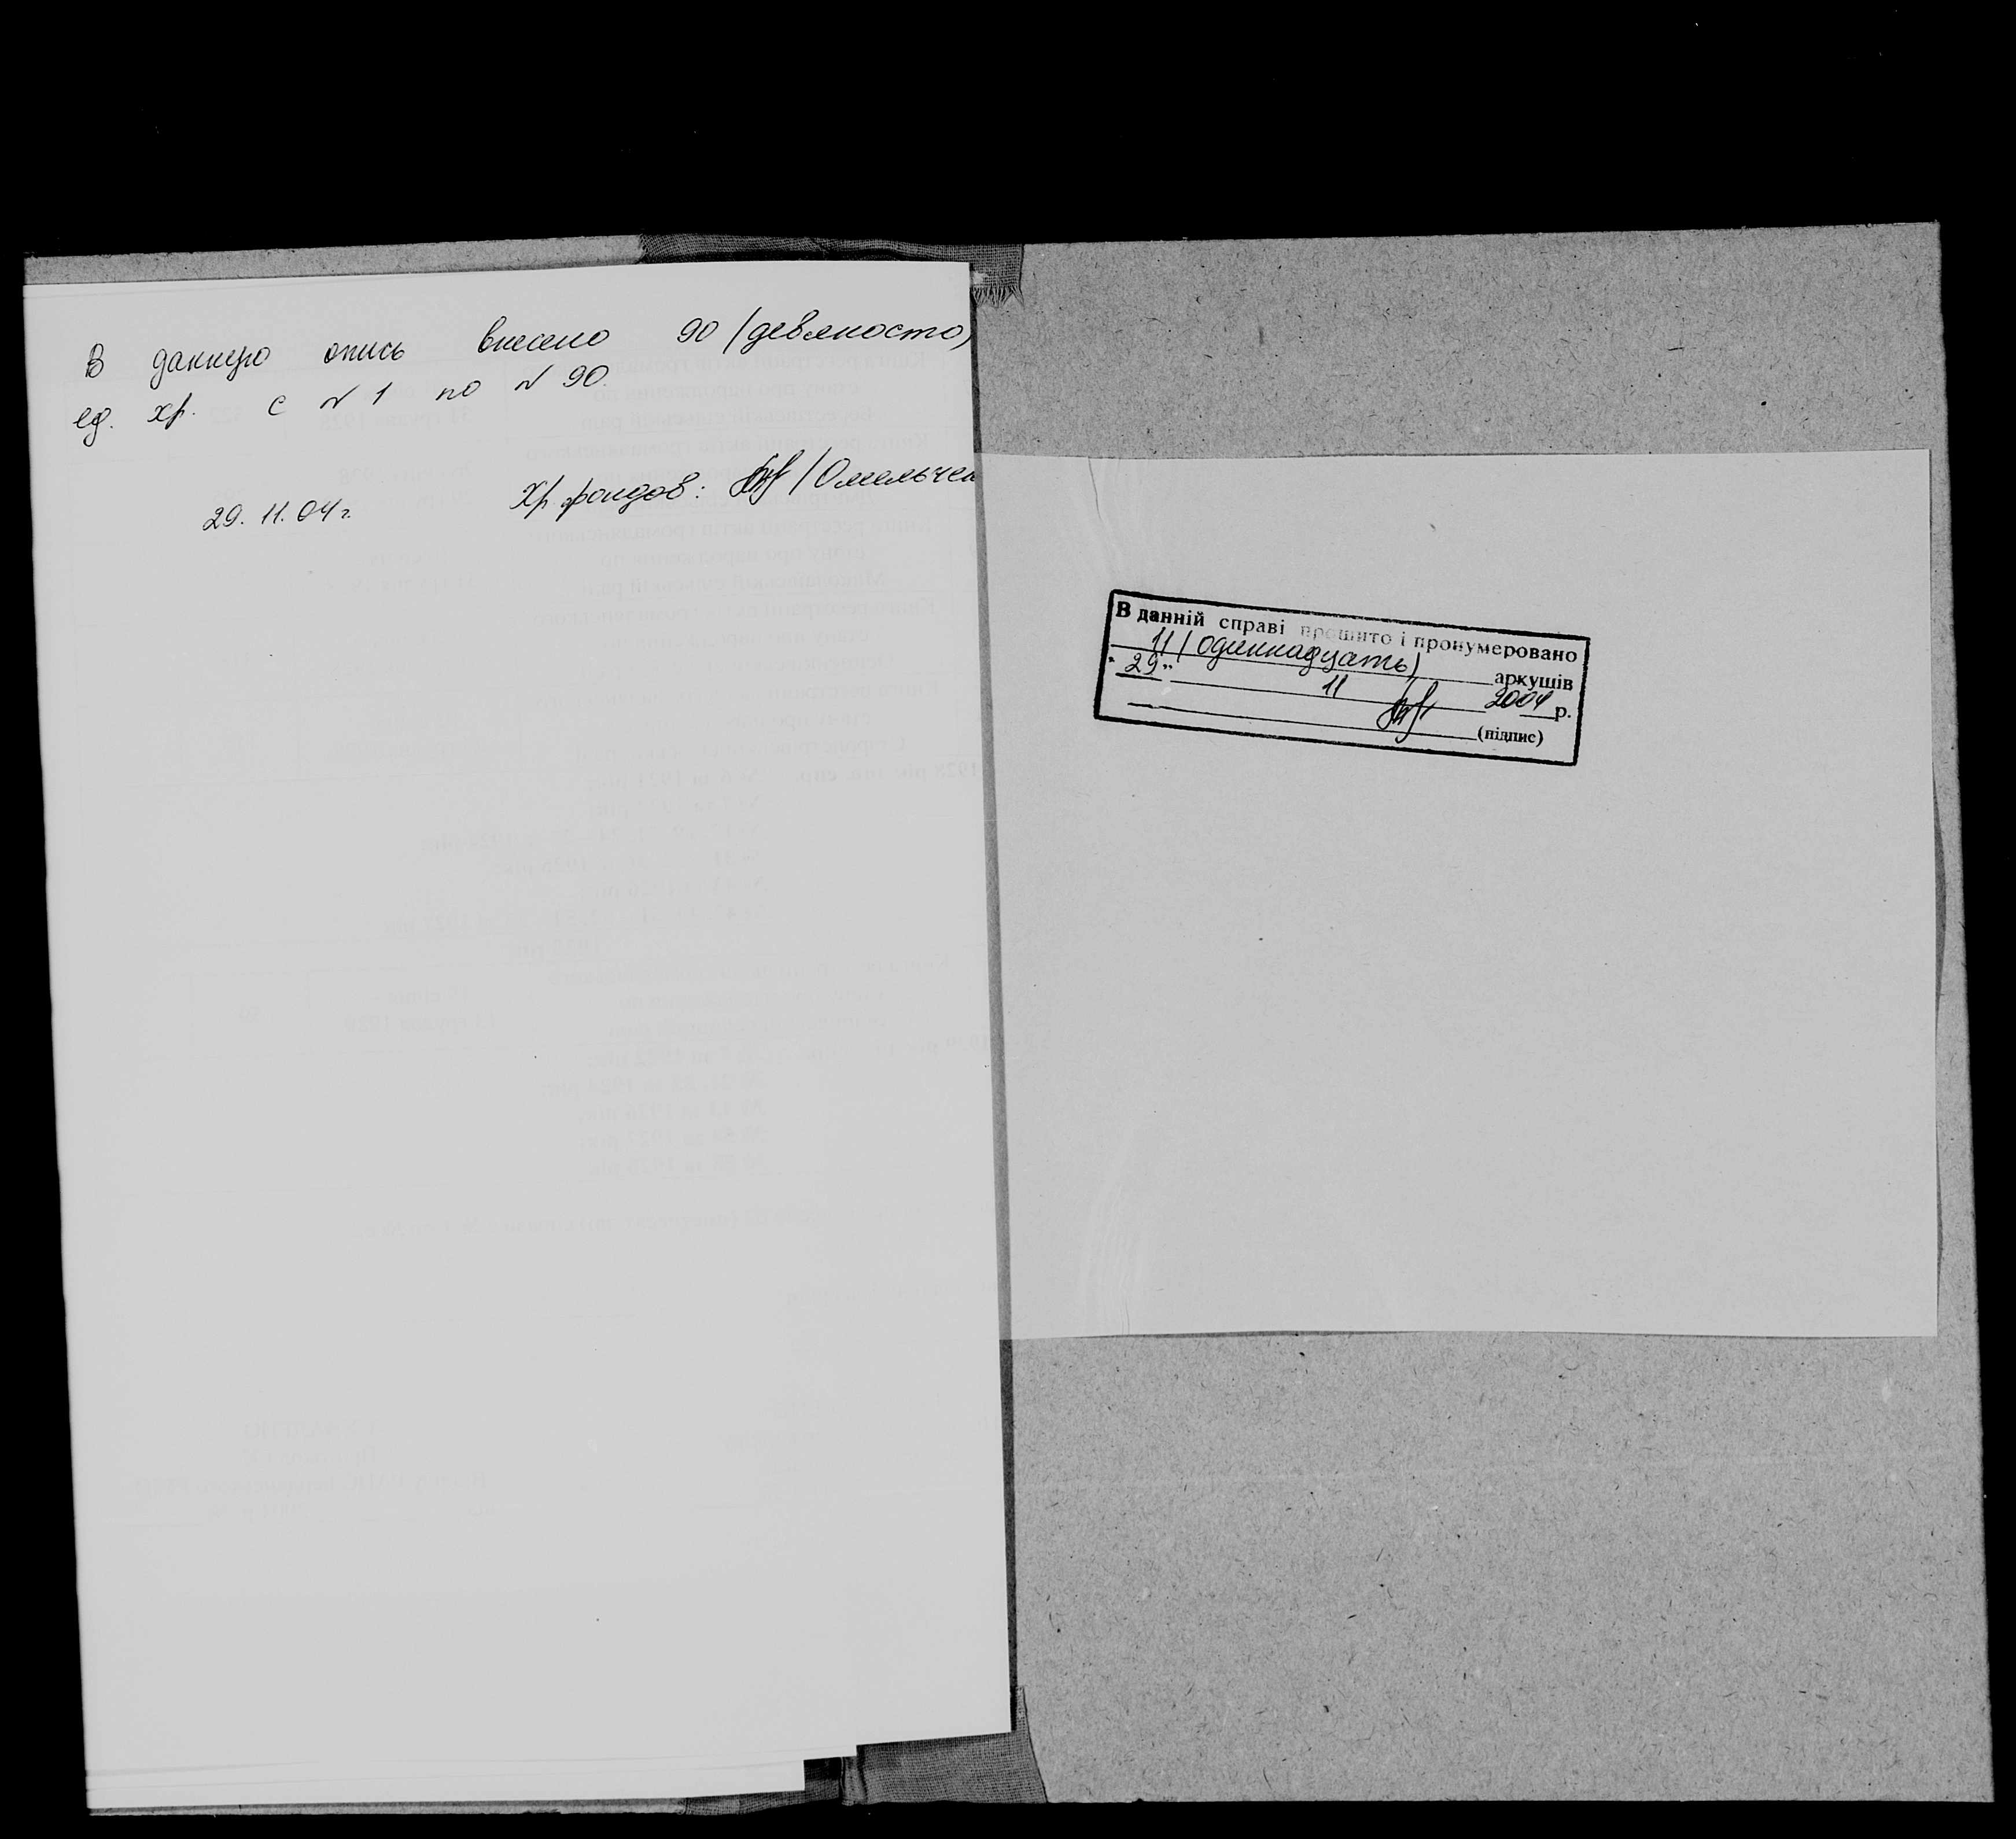 В данную опись внесено 90 (девяносто)
ед. хр. с № 1 по № 90.
Хр. фондов: /Омельчен
29. 11. 04 г.
В данній справі прошито і пронумеровано
11 (одиннадцать) аркушів
"29" 11 2004 р.
(підпис)